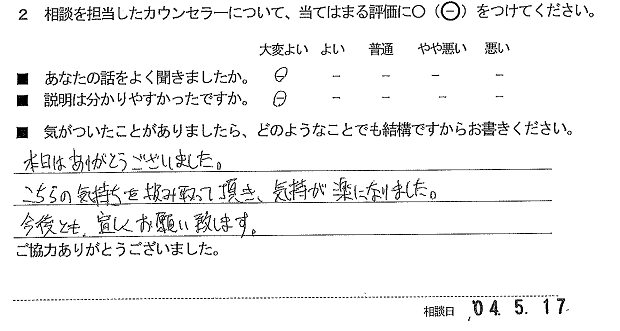 2 相談を担当したカウンセラーについて、当てはまる評価に○（⊖）をつけてください。
大変よい よい 普通 やや悪い 悪い
■ あなたの話をよく聞きましたか。 ⊖ － － － －
■ 説明は分かりやすかったですか。 ⊖ － － － －
■ 気がついたことがありましたら、どのようなことでも結構ですからお書きください。
本日はありがとうございました。
こちらの気持ちを汲み取って頂き、気持が楽になりました。
今後とも、宜しくお願い致します。
ご協力ありがとうございました。
相談日 '04. 5. 17